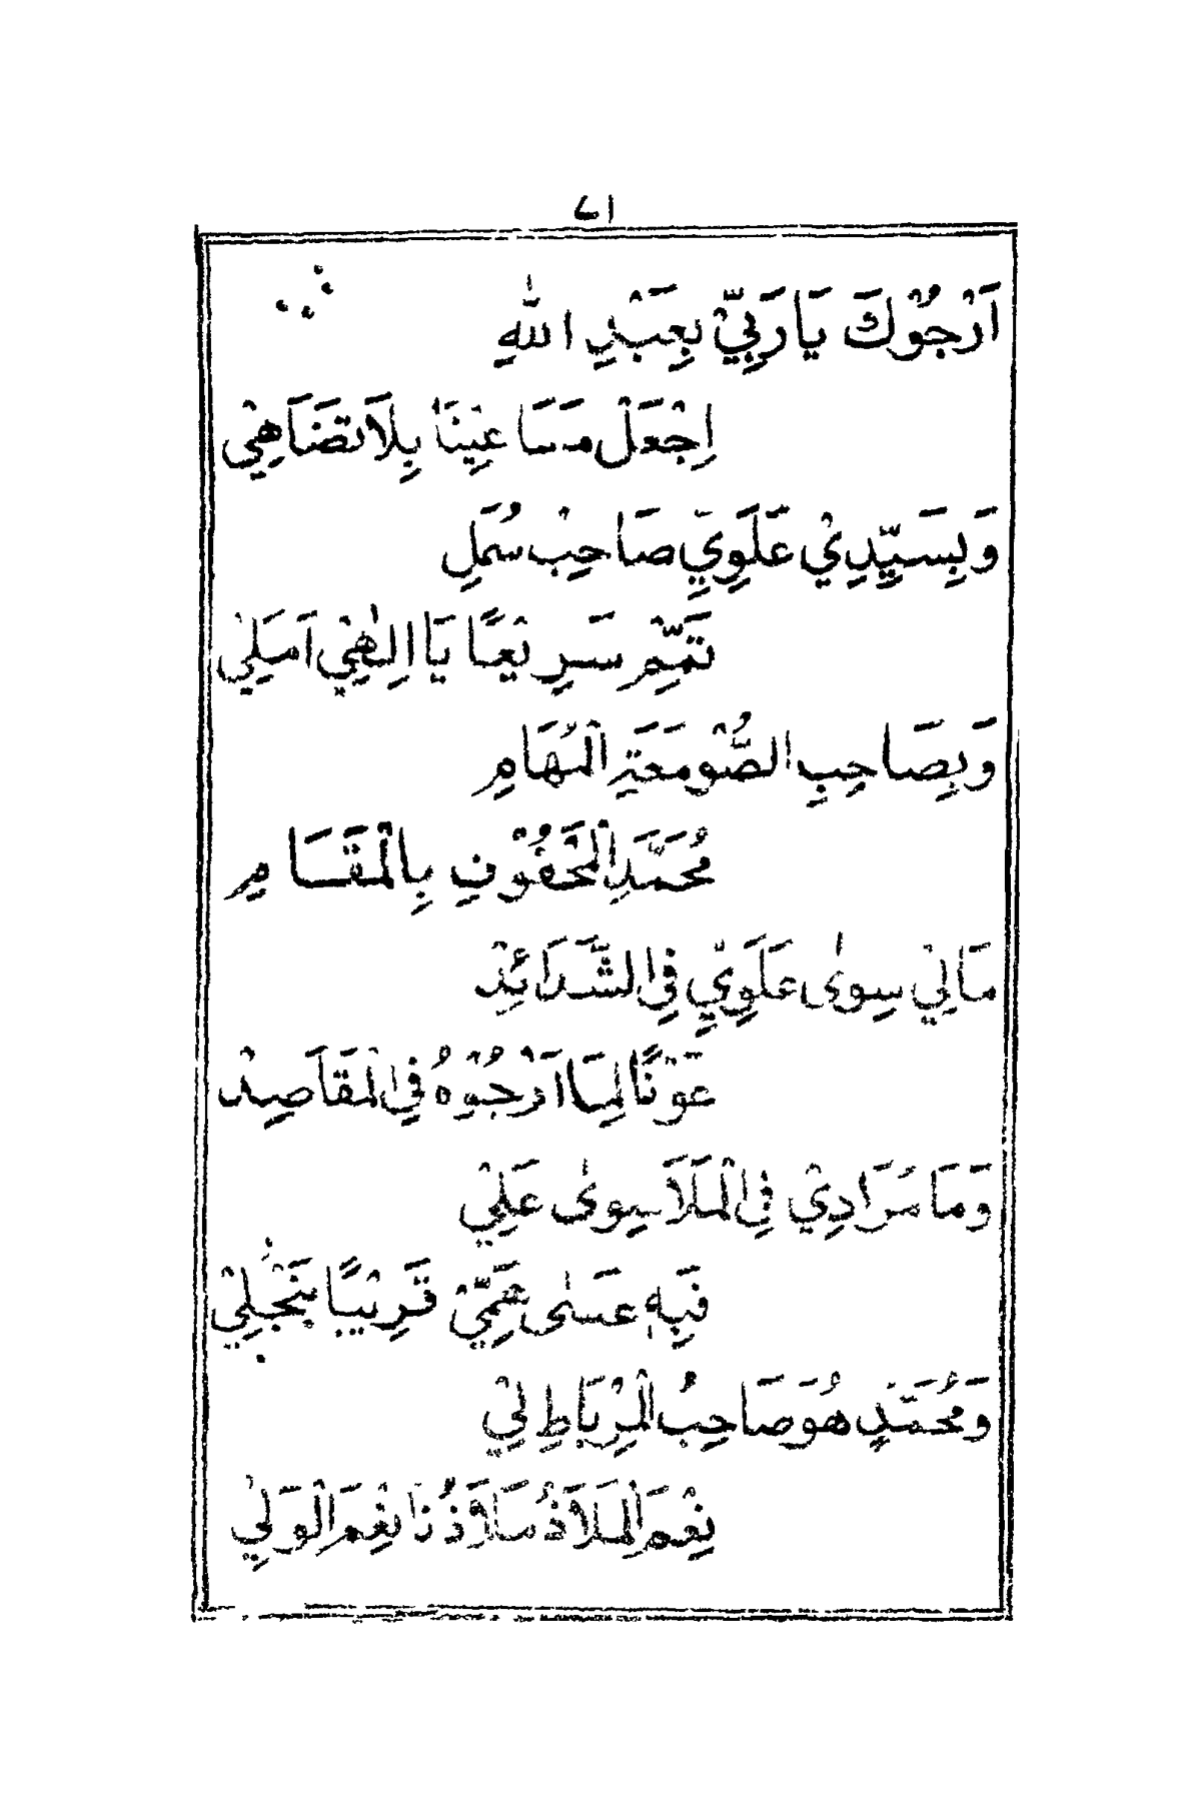 ٧١
اَرْجُوْكَ يَا رَبِّيْ بِعَبْدِ اللهِ
اِجْعَلْ مَسَاعِيْنَا بِلَا تَضَاهِيْ
وَبِسَيِّدِيْ عَلَوِيِّ صَاحِبْ سُمَلِ
تَمِّمْ سَرِيْعًا يَا اِلٰهِيْ اَمَلِيْ
وَبِصَاحِبِ الصُّوْمَعَةِ الْهُمَامِ
مُحَمَّدِ الْمَحْفُوْنِ بِالْمَقَامِ
مَالِيْ سِوٰى عَلَوِيِّ فِي الشَّدَائِدْ
عَوْنًا لِمَا اَرْجُوْهُ فِي الْمَقَاصِدْ
وَمَا مُرَادِيْ فِي الْمَلَا سِوٰى عَلِيْ
فَبِهِ عَسٰى غَمِّيْ قَرِيْبًا يَنْجَلِيْ
وَمُحَمَّدٍ هُوَ صَاحِبُ الْمِرْبَاطِ لِيْ
نِعْمَ الْمَلَاذُ مَلَاذُنَا نِعْمَ الْوَلِيْ